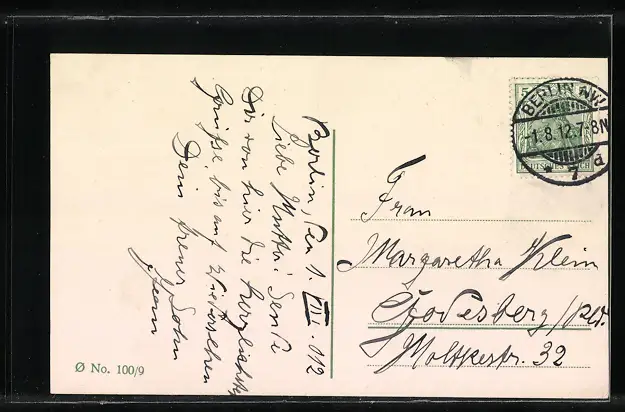 Berlin, den 1. VIII. 012
Liebe Mutter! Sende
Dir von hier die herzlichsten
Grüsse, bis auf Wiedersehen
Dein treuer Sohn
BERLIN NW
-1.8.12.7-8N
* 7 a
5
DEUTSCHES REICH
Frau
Margaretha Klein
Godesberg / Rh.
Moltkestr. 32
Ø No. 100/9